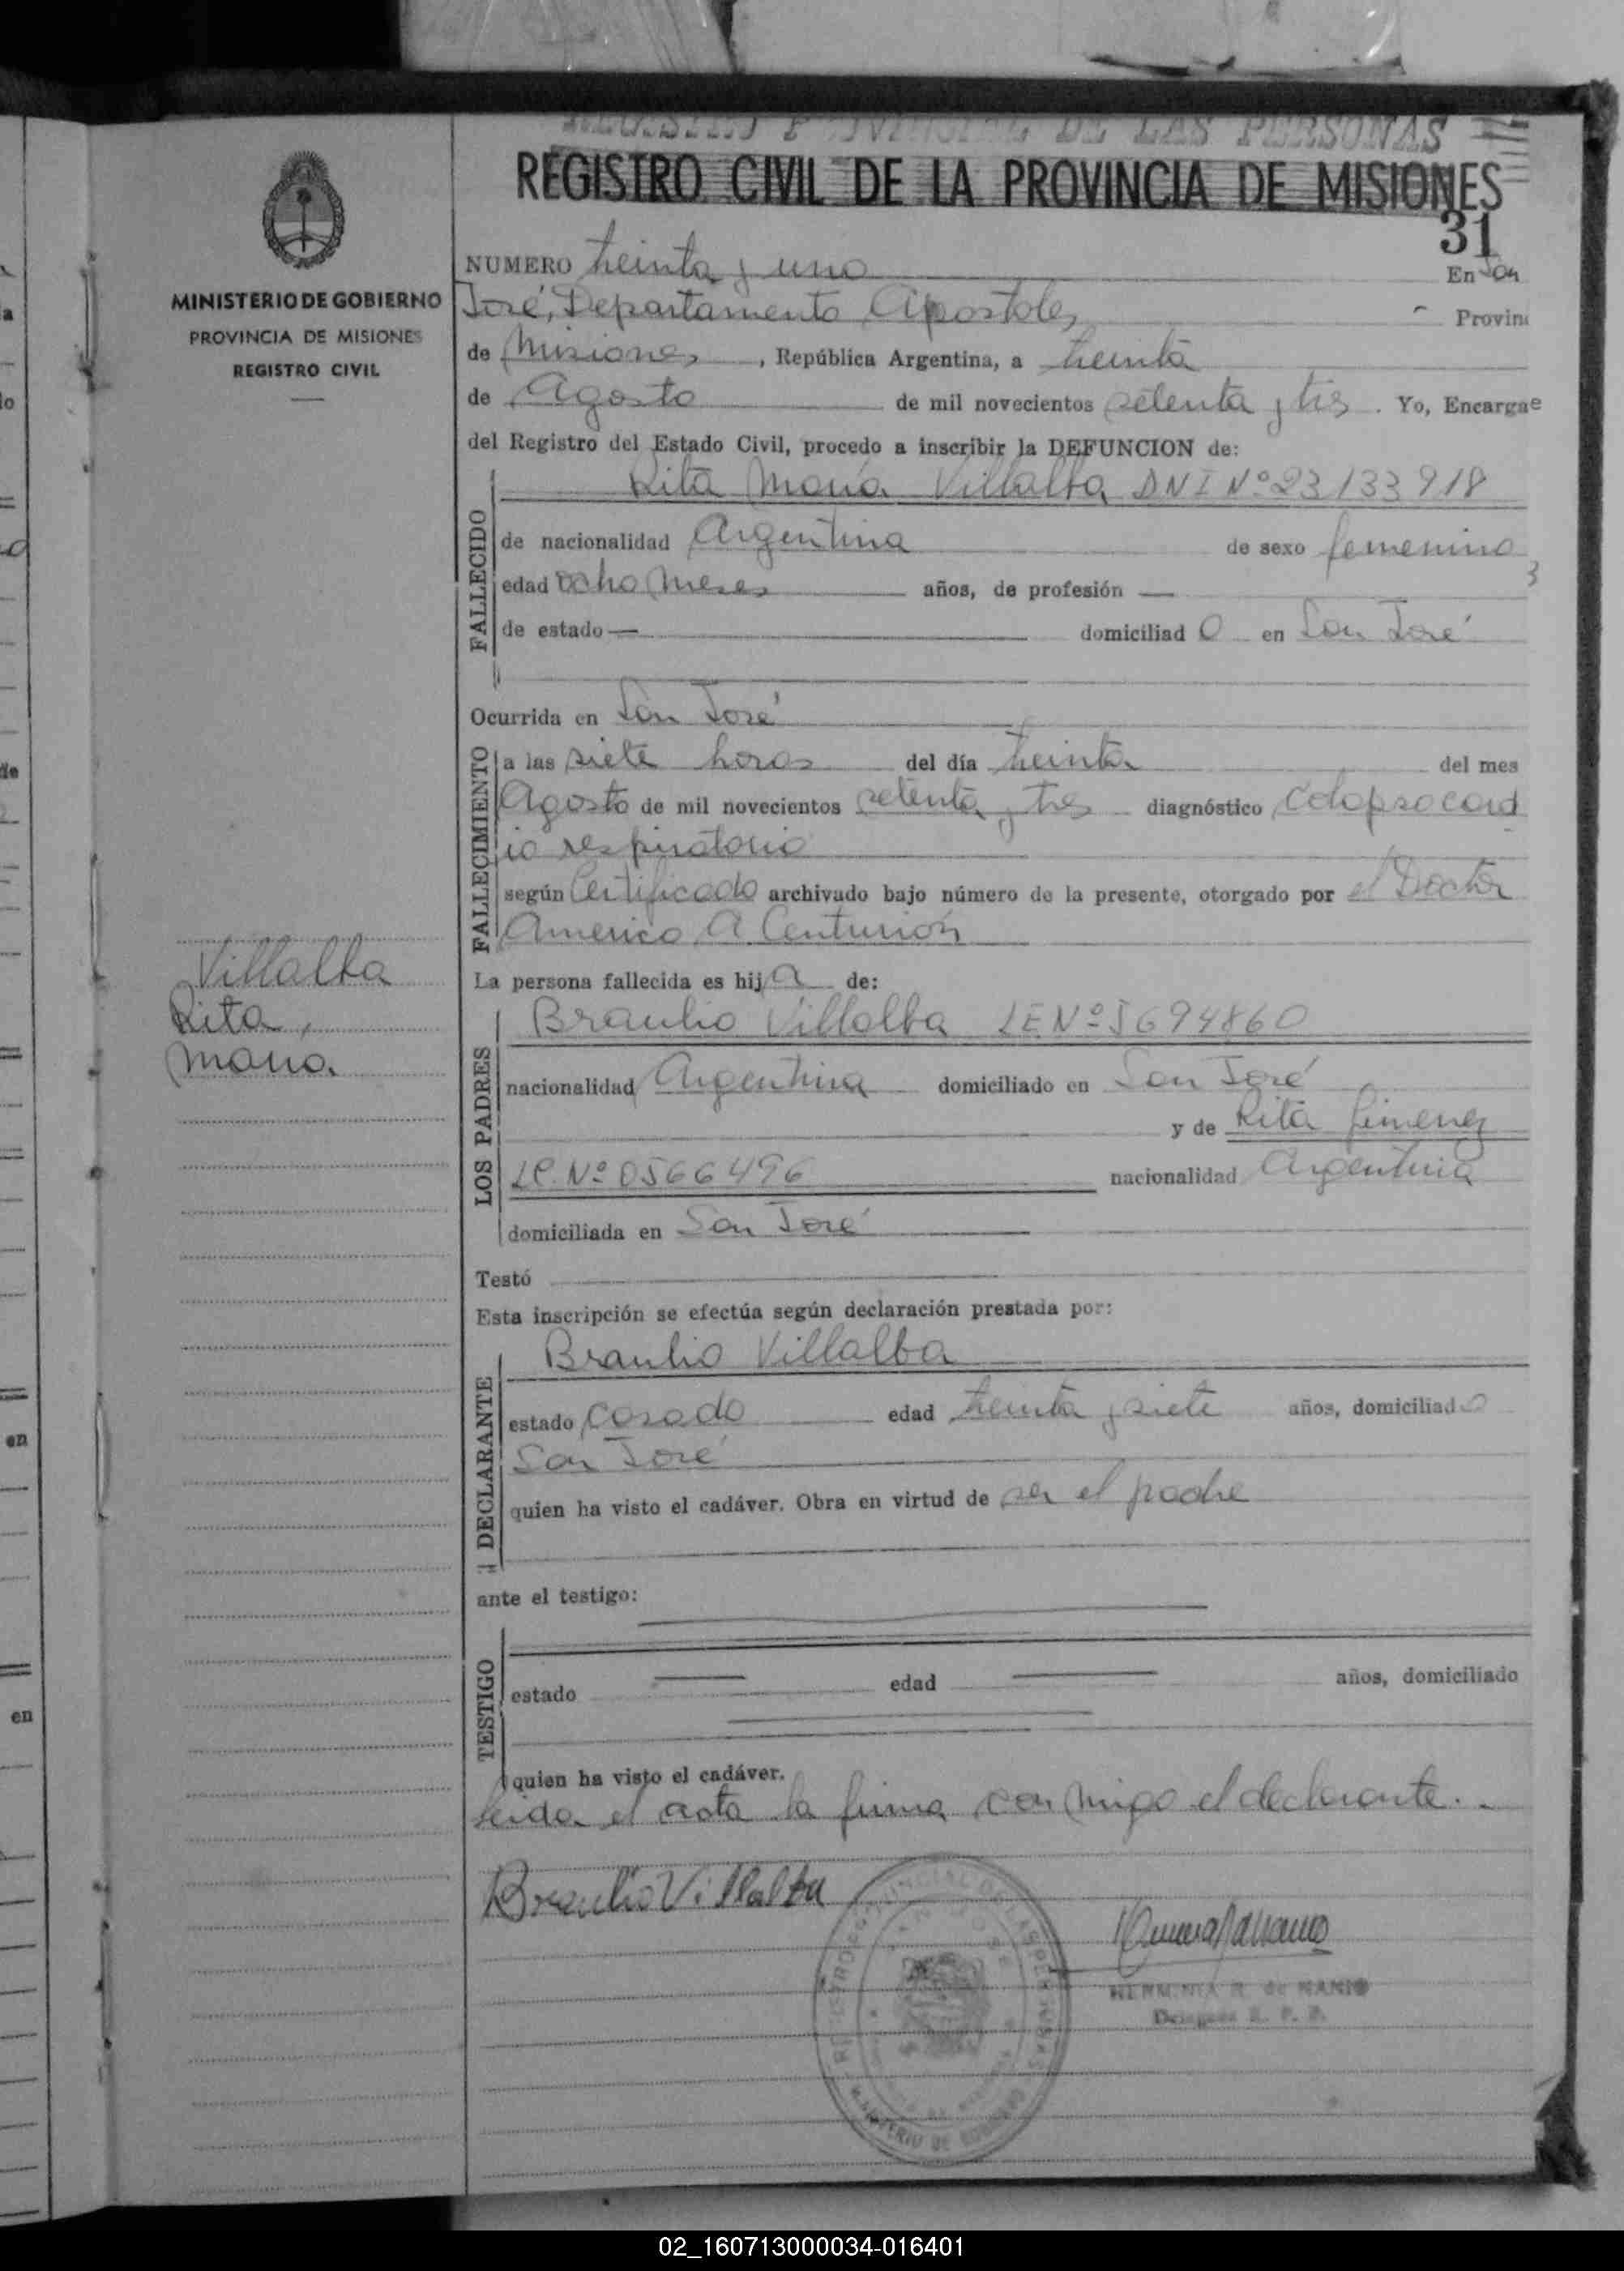 REGISTRO PROVINCIAL DE LAS PERSONAS
REGISTRO CIVIL DE LA PROVINCIA DE MISIONES
31
MINISTERIO DE GOBIERNO
PROVINCIA DE MISIONES
REGISTRO CIVIL
NUMERO treinta y uno En San
José, Departamento Apostoles Provin
de Misiones, República Argentina, a treinta
de Agosto de mil novecientos setenta y tres. Yo, Encarga
del Registro del Estado Civil, procedo a inscribir la DEFUNCION de:
Rita Maria Villalba DNI Nº 23133918
FALLECIDO
de nacionalidad Argentina de sexo femenino
edad ocho meses años, de profesión —
de estado — domiciliad O en San José
Ocurrida en San José
FALLECIMIENTO
a las siete horas del día treinta del mes
Agosto de mil novecientos setenta y tres diagnóstico colapso card
io respiratorio
según Certificado archivado bajo número de la presente, otorgado por el Doctor
Americo A Centurión
La persona fallecida es hija de:
Villalba
Rita,
Maria.
Braulio Villalba LE Nº 5694860
LOS PADRES
nacionalidad Argentina domiciliado en San José
y de Rita Gimenez
LC. Nº 0566496 nacionalidad Argentina
domiciliada en San José
Testó
Esta inscripción se efectúa según declaración prestada por:
Braulio Villalba
DECLARANTE
estado casado edad treinta y siete años, domiciliado
San José
quien ha visto el cadáver. Obra en virtud de ser el padre
ante el testigo:
TESTIGO
estado edad años, domiciliado
quien ha visto el cadáver.
leida el acta la firma con migo el declarante.
Braulio Villalba
HERMINIA R. de
MINISTERIO DE GOBIERNO
02_160713000034-016401